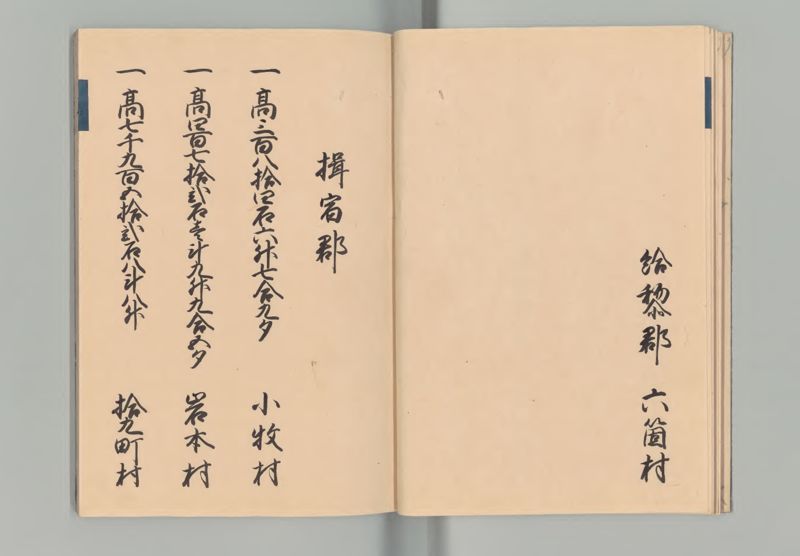 給黎郡 六箇村
揖宿郡
一 高三百八拾四石六升七合九夕 小牧村
一 高四百七拾弐石壱斗九升九合五夕 岩本村
一 高七千九百五拾弐石八斗八升 拾九町村